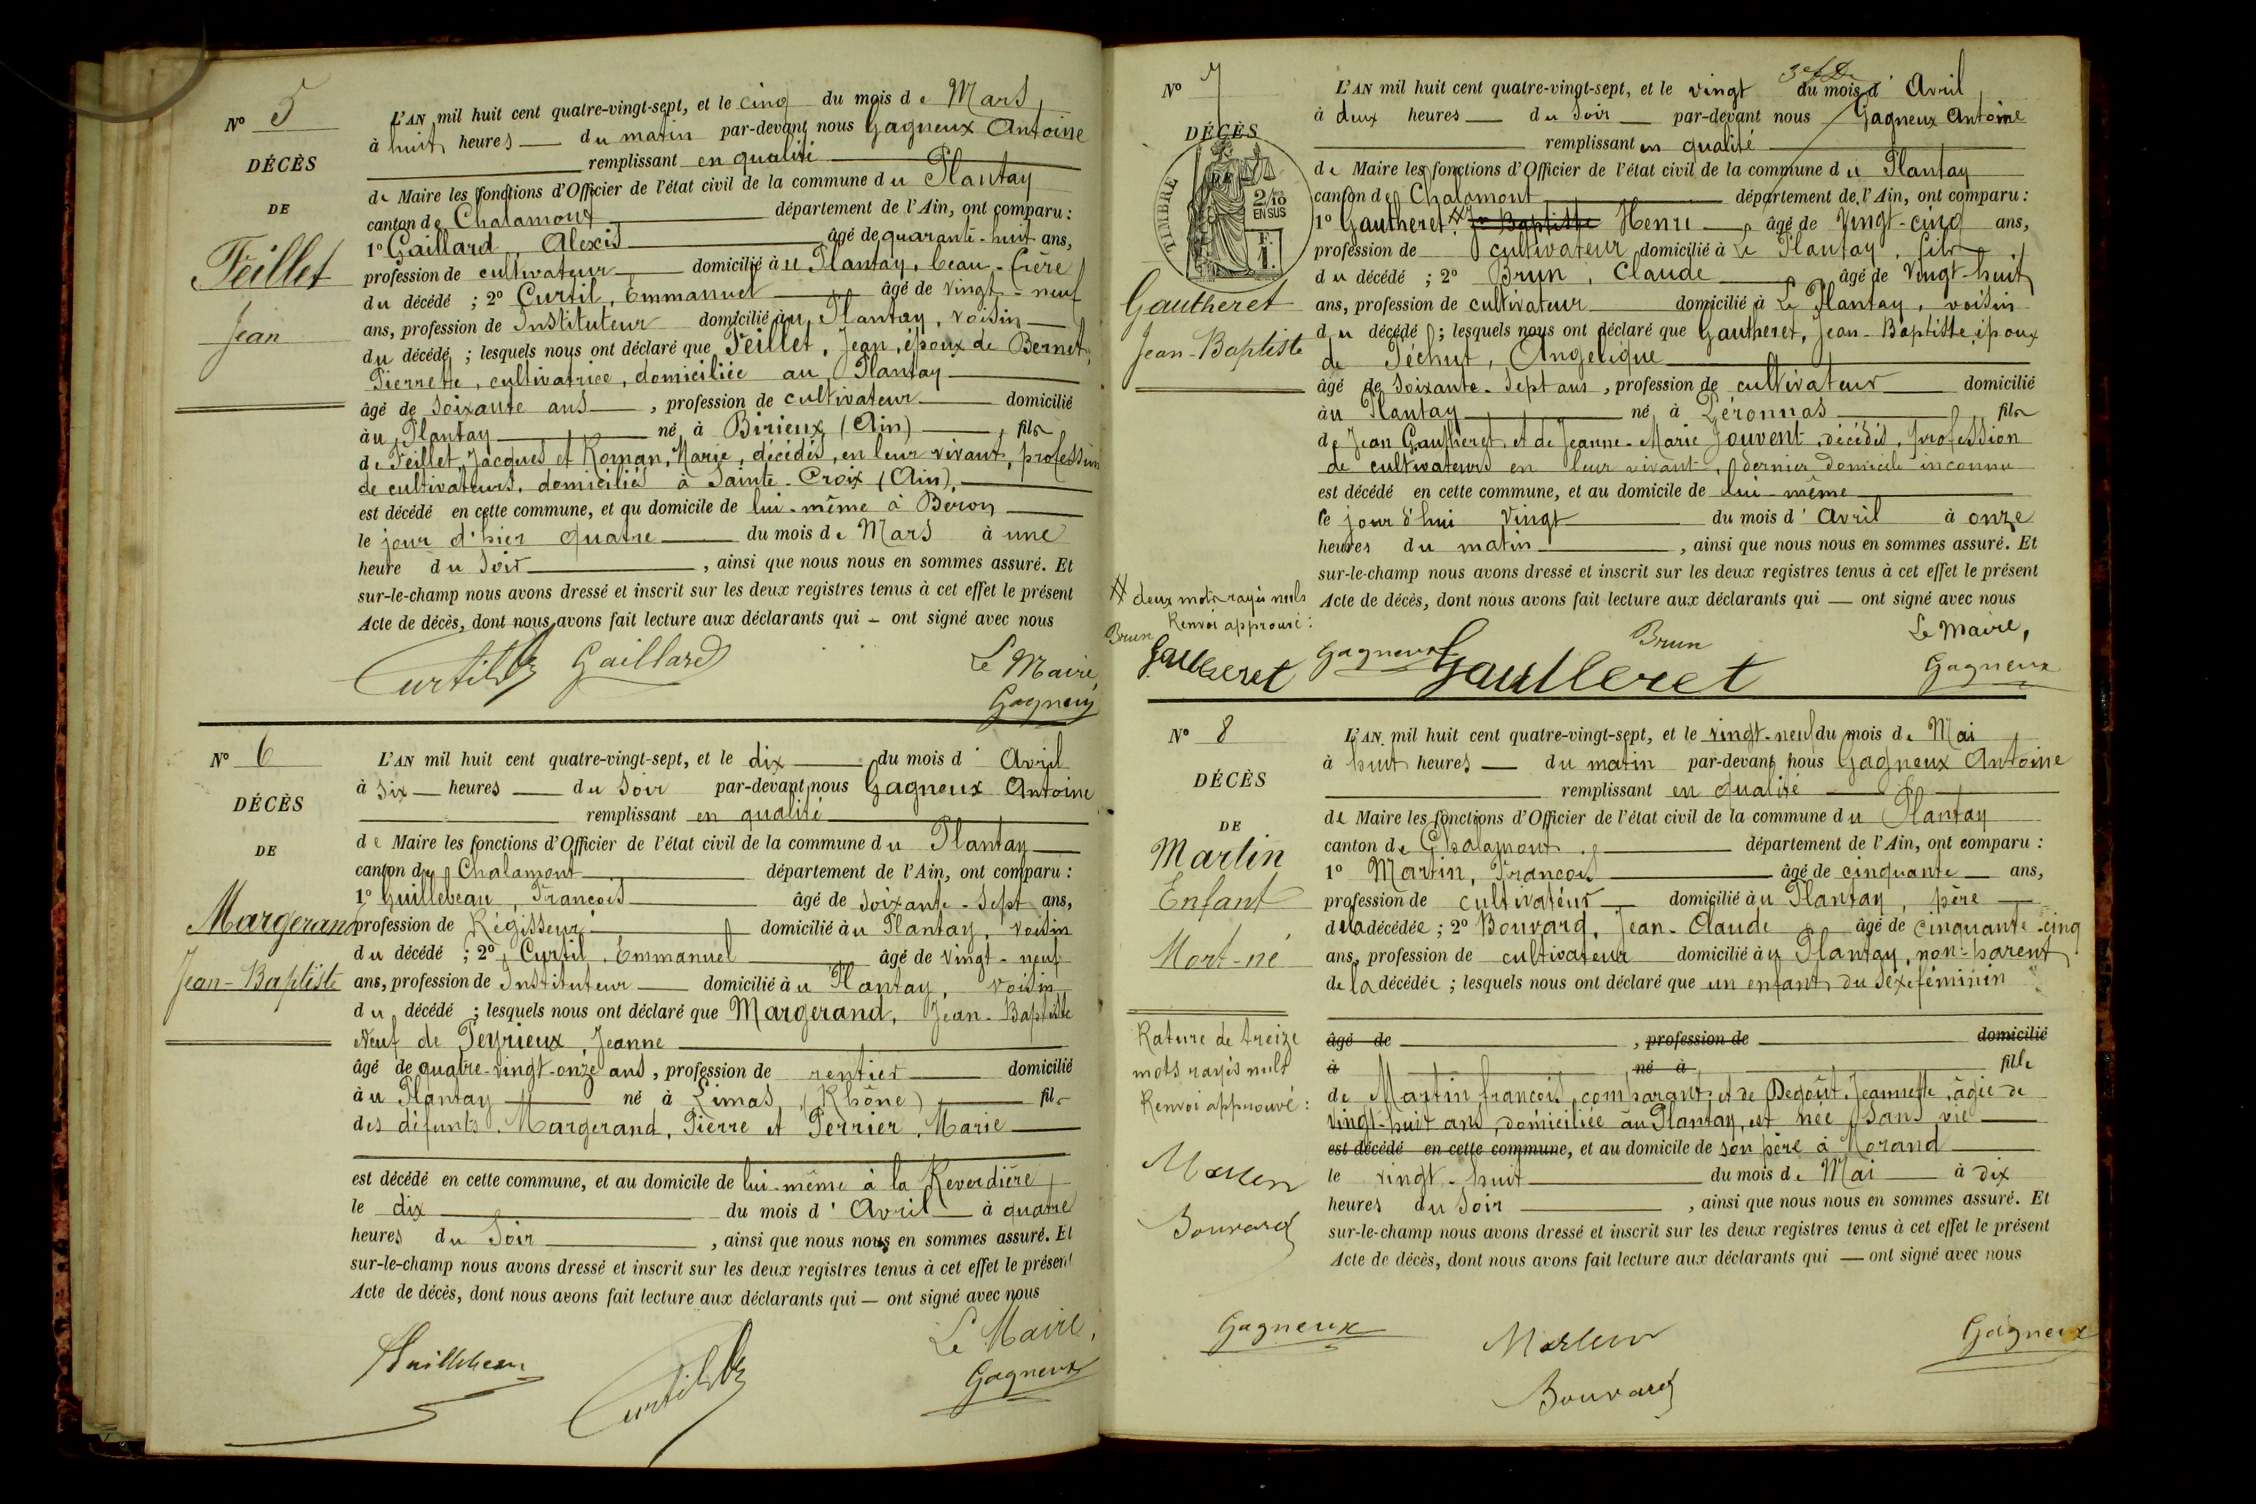 N° 5
DÉCÈS
DE
Feillet
Jean
L'AN mil huit cent quatre-vingt-sept, et le cinq du mois de Mars,
à huit heures du matin par-devant nous Gagneux Antoine
remplissant en qualité
de Maire les fonctions d'Officier de l'état civil de la commune du Plantay
canton de Chalamont département de l'Ain, ont comparu :
1° Gaillard, Alexis âgé de quarante-huit ans,
profession de cultivateur domicilié au Plantay, beau-frère
du décédé ; 2° Curtil, Emmanuel âgé de vingt-neuf
ans, profession de Instituteur domicilié au Plantay, voisin
du décédé ; lesquels nous ont déclaré que Feillet, Jean, époux de Bernet,
Pierrette, cultivatrice, domiciliée au Plantay
âgé de soixante ans, profession de cultivateur domicilié
au Plantay né à Birieux (Ain), fils
de Feillet, Jacques et Roman, Marie, décédés, en leur vivant, profession
de cultivateurs, domiciliés à Sainte-Croix (Ain),
est décédé en cette commune, et au domicile de lui-même à Béron
le jour d'hier quatre du mois de Mars à une
heure du soir, ainsi que nous nous en sommes assuré. Et
sur-le-champ nous avons dressé et inscrit sur les deux registres tenus à cet effet le présent
Acte de décès, dont nous avons fait lecture aux déclarants qui — ont signé avec nous
Curtil Gaillard Le Maire,
Gagneux
N° 6
DÉCÈS
DE
Margerand
Jean-Baptiste
L'AN mil huit cent quatre-vingt-sept, et le dix du mois d'Avril
à six heures du soir par-devant nous Gagneux Antoine
remplissant en qualité
de Maire les fonctions d'Officier de l'état civil de la commune du Plantay
canton de Chalamont département de l'Ain, ont comparu :
1° Guillebeau, François âgé de soixante-sept ans,
profession de Régisseur domicilié au Plantay, voisin
du décédé ; 2° Curtil, Emmanuel âgé de vingt-neuf
ans, profession de Instituteur domicilié au Plantay, voisin
du décédé ; lesquels nous ont déclaré que Margerand, Jean-Baptiste
Veuf de Peyrieux, Jeanne
âgé de quatre-vingt-onze ans, profession de rentier domicilié
au Plantay né à Limas (Rhône) fils
des défunts Margerand, Pierre et Perrier, Marie
est décédé en cette commune, et au domicile de lui-même à la Reverdière,
le dix du mois d'Avril à quatre
heures du soir, ainsi que nous nous en sommes assuré. Et
sur-le-champ nous avons dressé et inscrit sur les deux registres tenus à cet effet le présent
Acte de décès, dont nous avons fait lecture aux déclarants qui — ont signé avec nous
Le Maire,
Guillebeau Curtil Gagneux
N° 7
DÉCÈS
TIMBRE
2/10
EN SUS
Gautheret
Jean-Baptiste
L'AN mil huit cent quatre-vingt-sept, et le vingt du mois d'Avril
à deux heures du soir par-devant nous Gagneux Antoine
remplissant en qualité
de Maire les fonctions d'Officier de l'état civil de la commune du Plantay
canton de Chalamont département de l'Ain, ont comparu :
1° Gautheret # Jn Baptiste Henri âgé de vingt-cinq ans,
profession de cultivateur domicilié à Le Plantay, fils
du décédé ; 2° Brun, Claude âgé de vingt-huit
ans, profession de cultivateur domicilié à Le Plantay, voisin
du décédé ; lesquels nous ont déclaré que Gautheret, Jean-Baptiste, époux
de Péchut, Angélique
âgé de soixante-sept ans, profession de cultivateur domicilié
au Plantay né à Péronnas, fils
de Jean Gautheret et de Jeanne-Marie Jouvent, décédés, profession
de cultivateurs en leur vivant, dernier domicile inconnu
est décédé en cette commune, et au domicile de lui-même
le jour d'hui vingt du mois d'Avril à onze
heures du matin, ainsi que nous nous en sommes assuré. Et
sur-le-champ nous avons dressé et inscrit sur les deux registres tenus à cet effet le présent
Acte de décès, dont nous avons fait lecture aux déclarants qui — ont signé avec nous
# deux mots rayés nuls
Renvoi approuvé :
Brun Gautheret Gagneux Gautheret Brun Le Maire,
Gagneux
N° 8
DÉCÈS
DE
Martin
Enfant
Mort-né
L'AN mil huit cent quatre-vingt-sept, et le vingt-neuf du mois de Mai
à huit heures du matin par-devant nous Gagneux Antoine
remplissant en qualité
de Maire les fonctions d'Officier de l'état civil de la commune du Plantay
canton de Chalamont département de l'Ain, ont comparu :
1° Martin, François âgé de cinquante ans,
profession de cultivateur domicilié au Plantay, père
de la décédée ; 2° Bouvard, Jean-Claude âgé de cinquante-cinq
ans, profession de cultivateur domicilié au Plantay, non-parent
de la décédée ; lesquels nous ont déclaré que un enfant du sexe féminin
âgé de , profession de domicilié
à né à fille
de Martin françois, comparant, et de Degoût, Jeannette, âgée de
vingt-huit ans, domiciliée au Plantay, est née sans vie
est décédé en cette commune, et au domicile de son père à Morand
le vingt-huit du mois de Mai à dix
heures du soir, ainsi que nous nous en sommes assuré. Et
sur-le-champ nous avons dressé et inscrit sur les deux registres tenus à cet effet le présent
Acte de décès, dont nous avons fait lecture aux déclarants qui — ont signé avec nous
Rature de treize
mots rayés nuls
Renvoi approuvé :
Martin
Bouvard
Gagneux Martin Gagneux
Bouvard